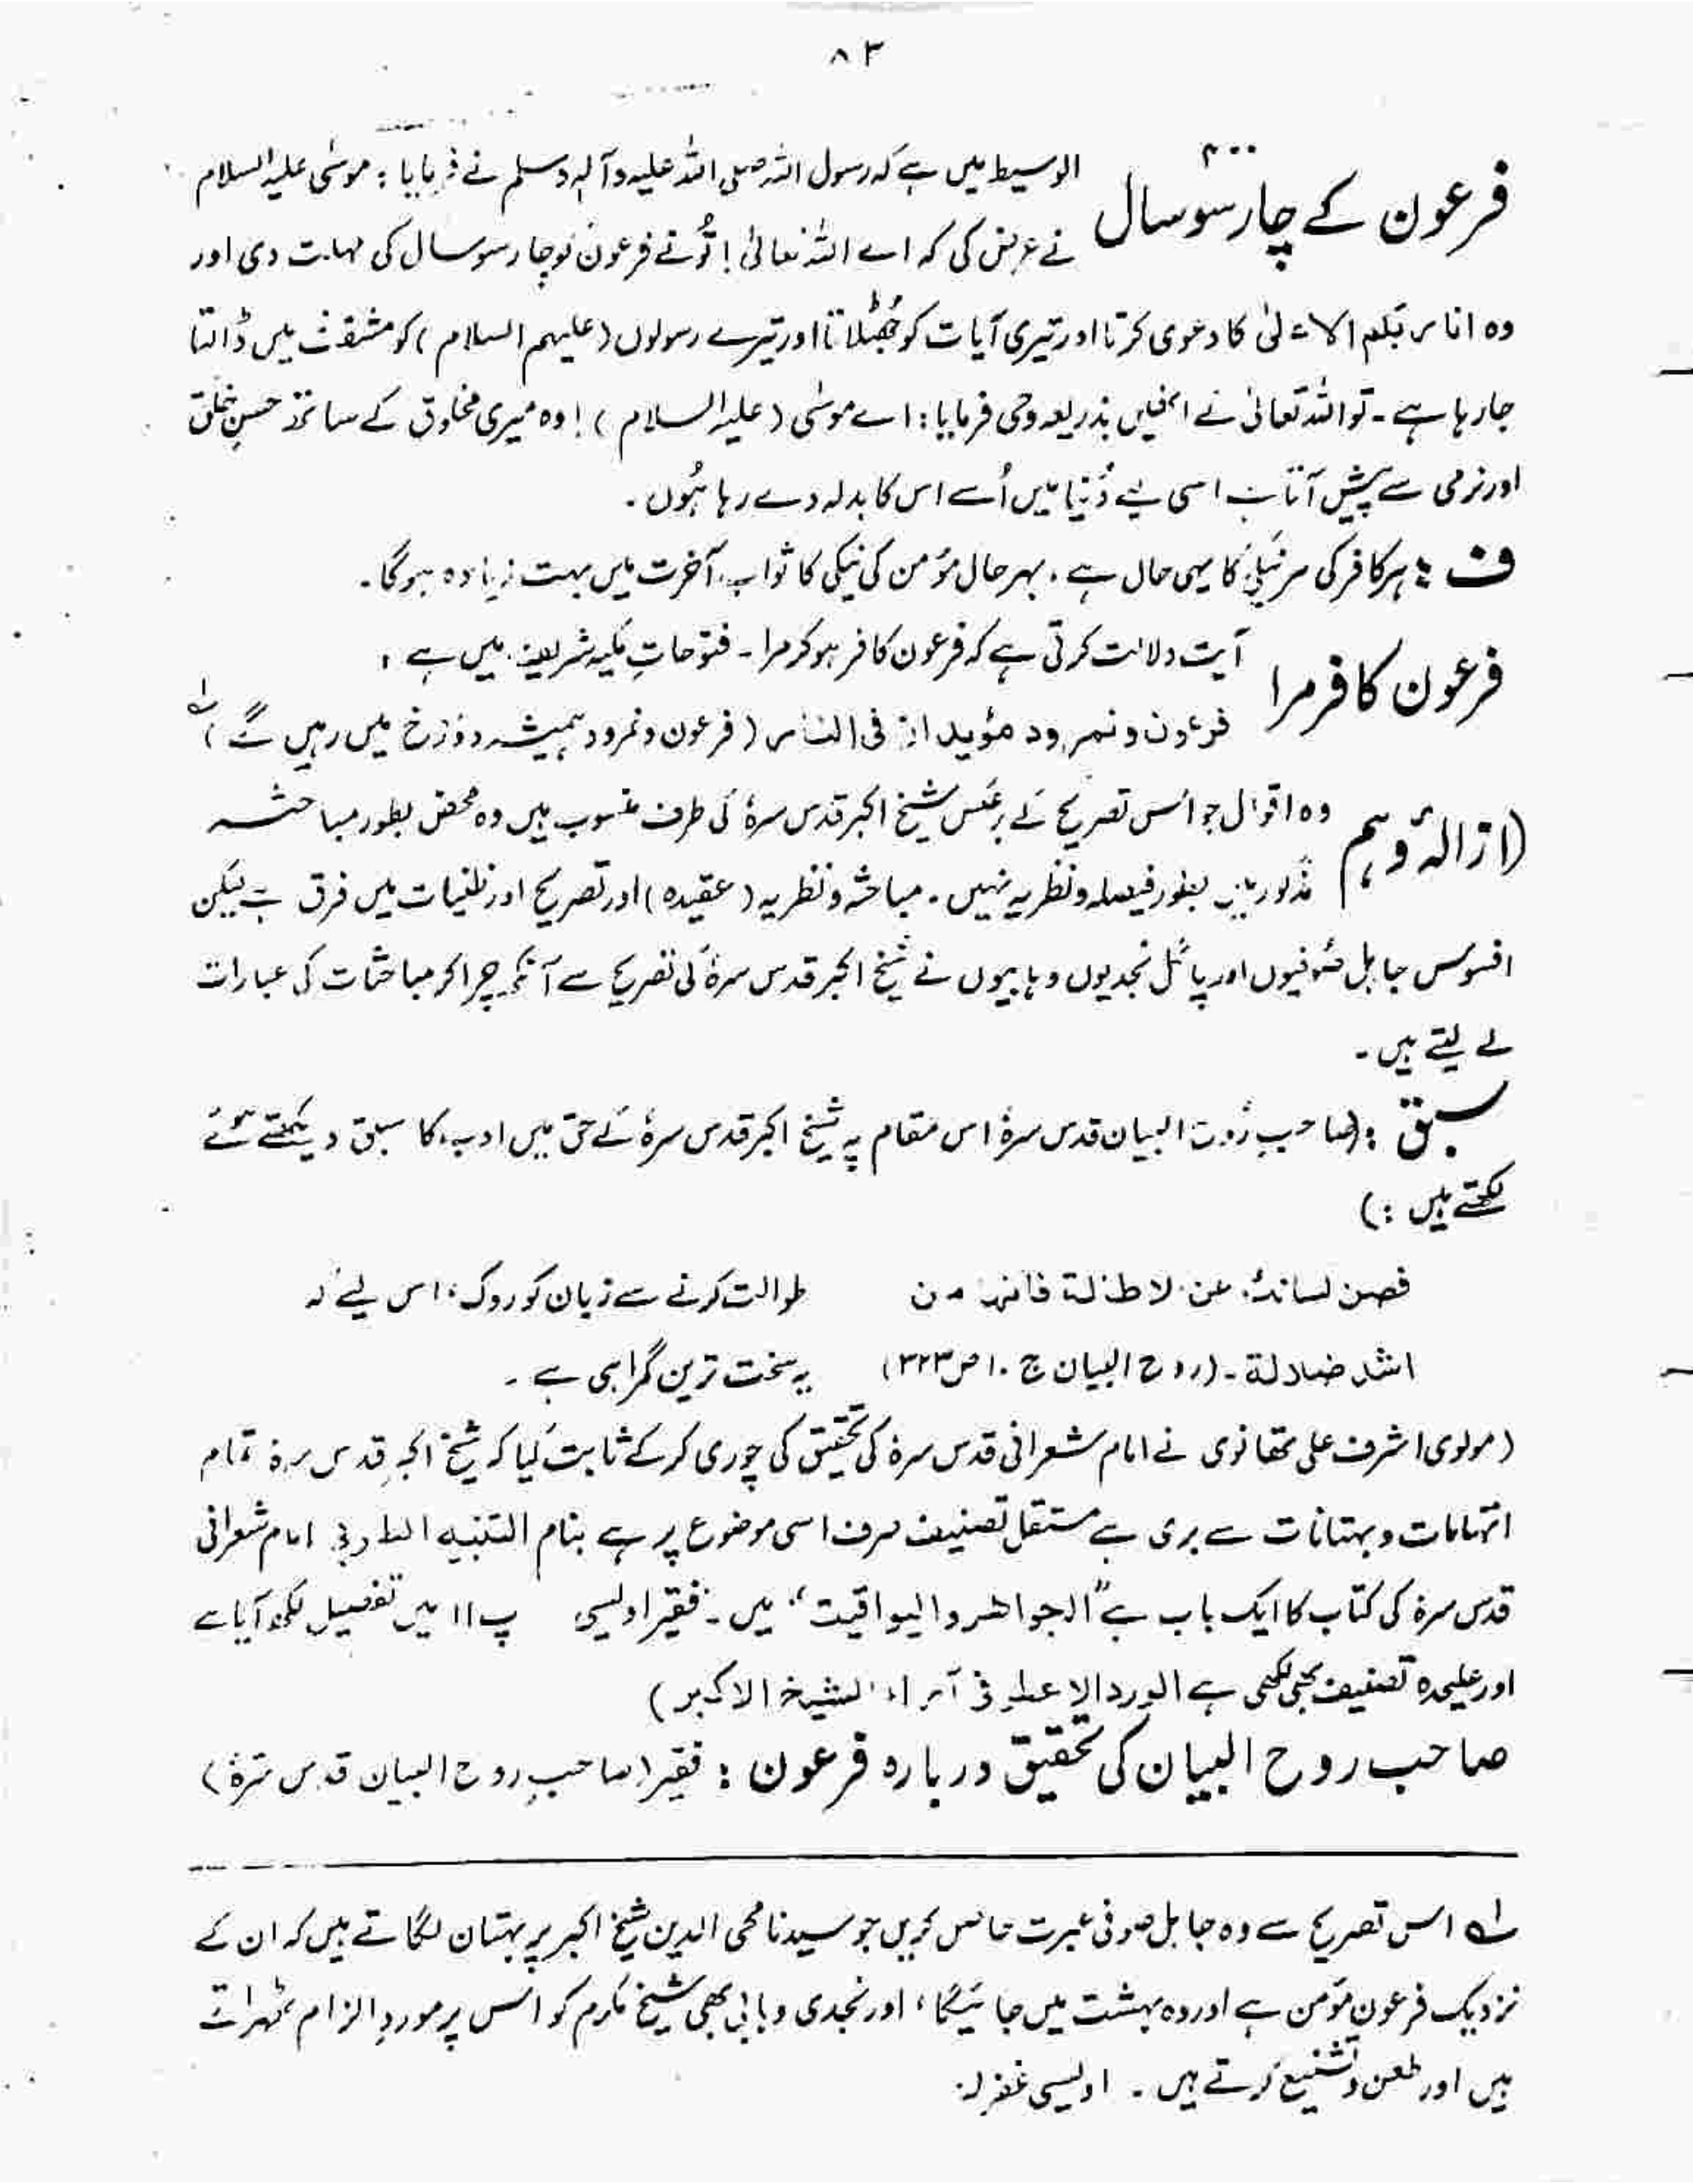 ۸۳
۴۰۰
فرعون کے چار سو سال
الوسیط میں ہے کہ رسول اللہ صلی اللہ علیہ وآلہٖ وسلم نے فرمایا : موسٰی علیہ السلام
نے عرض کی کہ اے اللہ تعالیٰ ! تُو نے فرعون کو چار سو سال کی مہلت دی اور
وہ انا ربکم الاعلیٰ کا دعوی کرتا اور تیری آیات کو جُھٹلاتا اور تیرے رسولوں (علیہم السلام) کو مشقت میں ڈالتا
جا رہا ہے ۔ تو اللہ تعالیٰ نے انھیں بذریعہ وحی فرمایا : اے موسٰی (علیہ السلام) ! وہ میری مخلوق کے ساتھ حسنِ خلق
اور نرمی سے پیش آتا ہے اسی لیے دُنیا میں اُسے اس کا بدلہ دے رہا ہُوں ۔
ف : ہر کافر کی ہر نیکی کا یہی حال ہے ، بہر حال مؤمن کی نیکی کا ثواب آخرت میں بہت زیادہ ہوگا ۔
فرعون کافر مرا
آیت دلالت کرتی ہے کہ فرعون کافر ہو کر مرا ۔ فتوحاتِ مکیہ شریف میں ہے :
فرعون و نمرود مؤبدان فی النار (فرعون و نمرود ہمیشہ دوزخ میں رہیں گے) لہ
(ازالۂ وہم
وہ اقوال جو اس تصریح کے برعکس شیخ اکبر قدس سرہٗ کی طرف منسوب ہیں وہ محض بطور مباحثہ
مذکور ہیں بطور فیصلہ و نظریہ نہیں ۔ مباحثہ و نظریہ (عقیدہ) اور تصریح اور ظنیات میں فرق ہے لیکن
افسوس جاہل صُوفیوں اور پاگل نجدیوں وہابیوں نے شیخ اکبر قدس سرہٗ کی تصریح سے آنکھ چرا کر مباحثات کی عبارات
لے لیتے ہیں ۔
سبق : (صاحبِ رُوح البیان قدس سرہٗ اس مقام پہ شیخ اکبر قدس سرہٗ کے حق میں ادب کا سبق دیکھتے ہوئے
لکھتے ہیں : )
فصن لسانک عن لاطالة فانہا من
طوالت کرنے سے زبان کو روک ، اس لیے کہ
اشد ضلالة ۔ (روح البیان ج ۱۰ ص ۳۲۳)
یہ سخت ترین گمراہی ہے ۔
(مولوی اشرف علی تھانوی نے امام شعرانی قدس سرہٗ کی تحقیق کی چوری کر کے ثابت کیا کہ شیخ اکبر قدس سرہٗ تمام
اتہامات و بہتانات سے بری ہے مستقل تصنیف صرف اسی موضوع پر ہے بنام التنبیہ الطربی امام شعرانی
قدس سرہٗ کی کتاب کا ایک باب ہے "الجواھر والیواقیت" میں ۔ فقیر اویسی پ ۱۱ میں تفصیل لکھ آیا ہے
اور علیحدہ تصنیف بھی لکھی ہے الورد الاعطر فی آراء الشیخ الاکبر)
صاحب روح البیان کی تحقیق دربارہ فرعون : فقیر (صاحبِ روح البیان قدس سرہٗ)
لہ اس تصریح سے وہ جاہل صوفی عبرت حاصل کریں جو سیدنا محی الدین شیخ اکبر پر بہتان لگاتے ہیں کہ ان کے
نزدیک فرعون مؤمن ہے اور وہ بہشت میں جائیگا ، اور نجدی وہابی بھی شیخ مکرم کو اس پر موردِ الزام ٹھہراتے
ہیں اور طعن و تشنیع کرتے ہیں ۔ اویسی غفرلہ